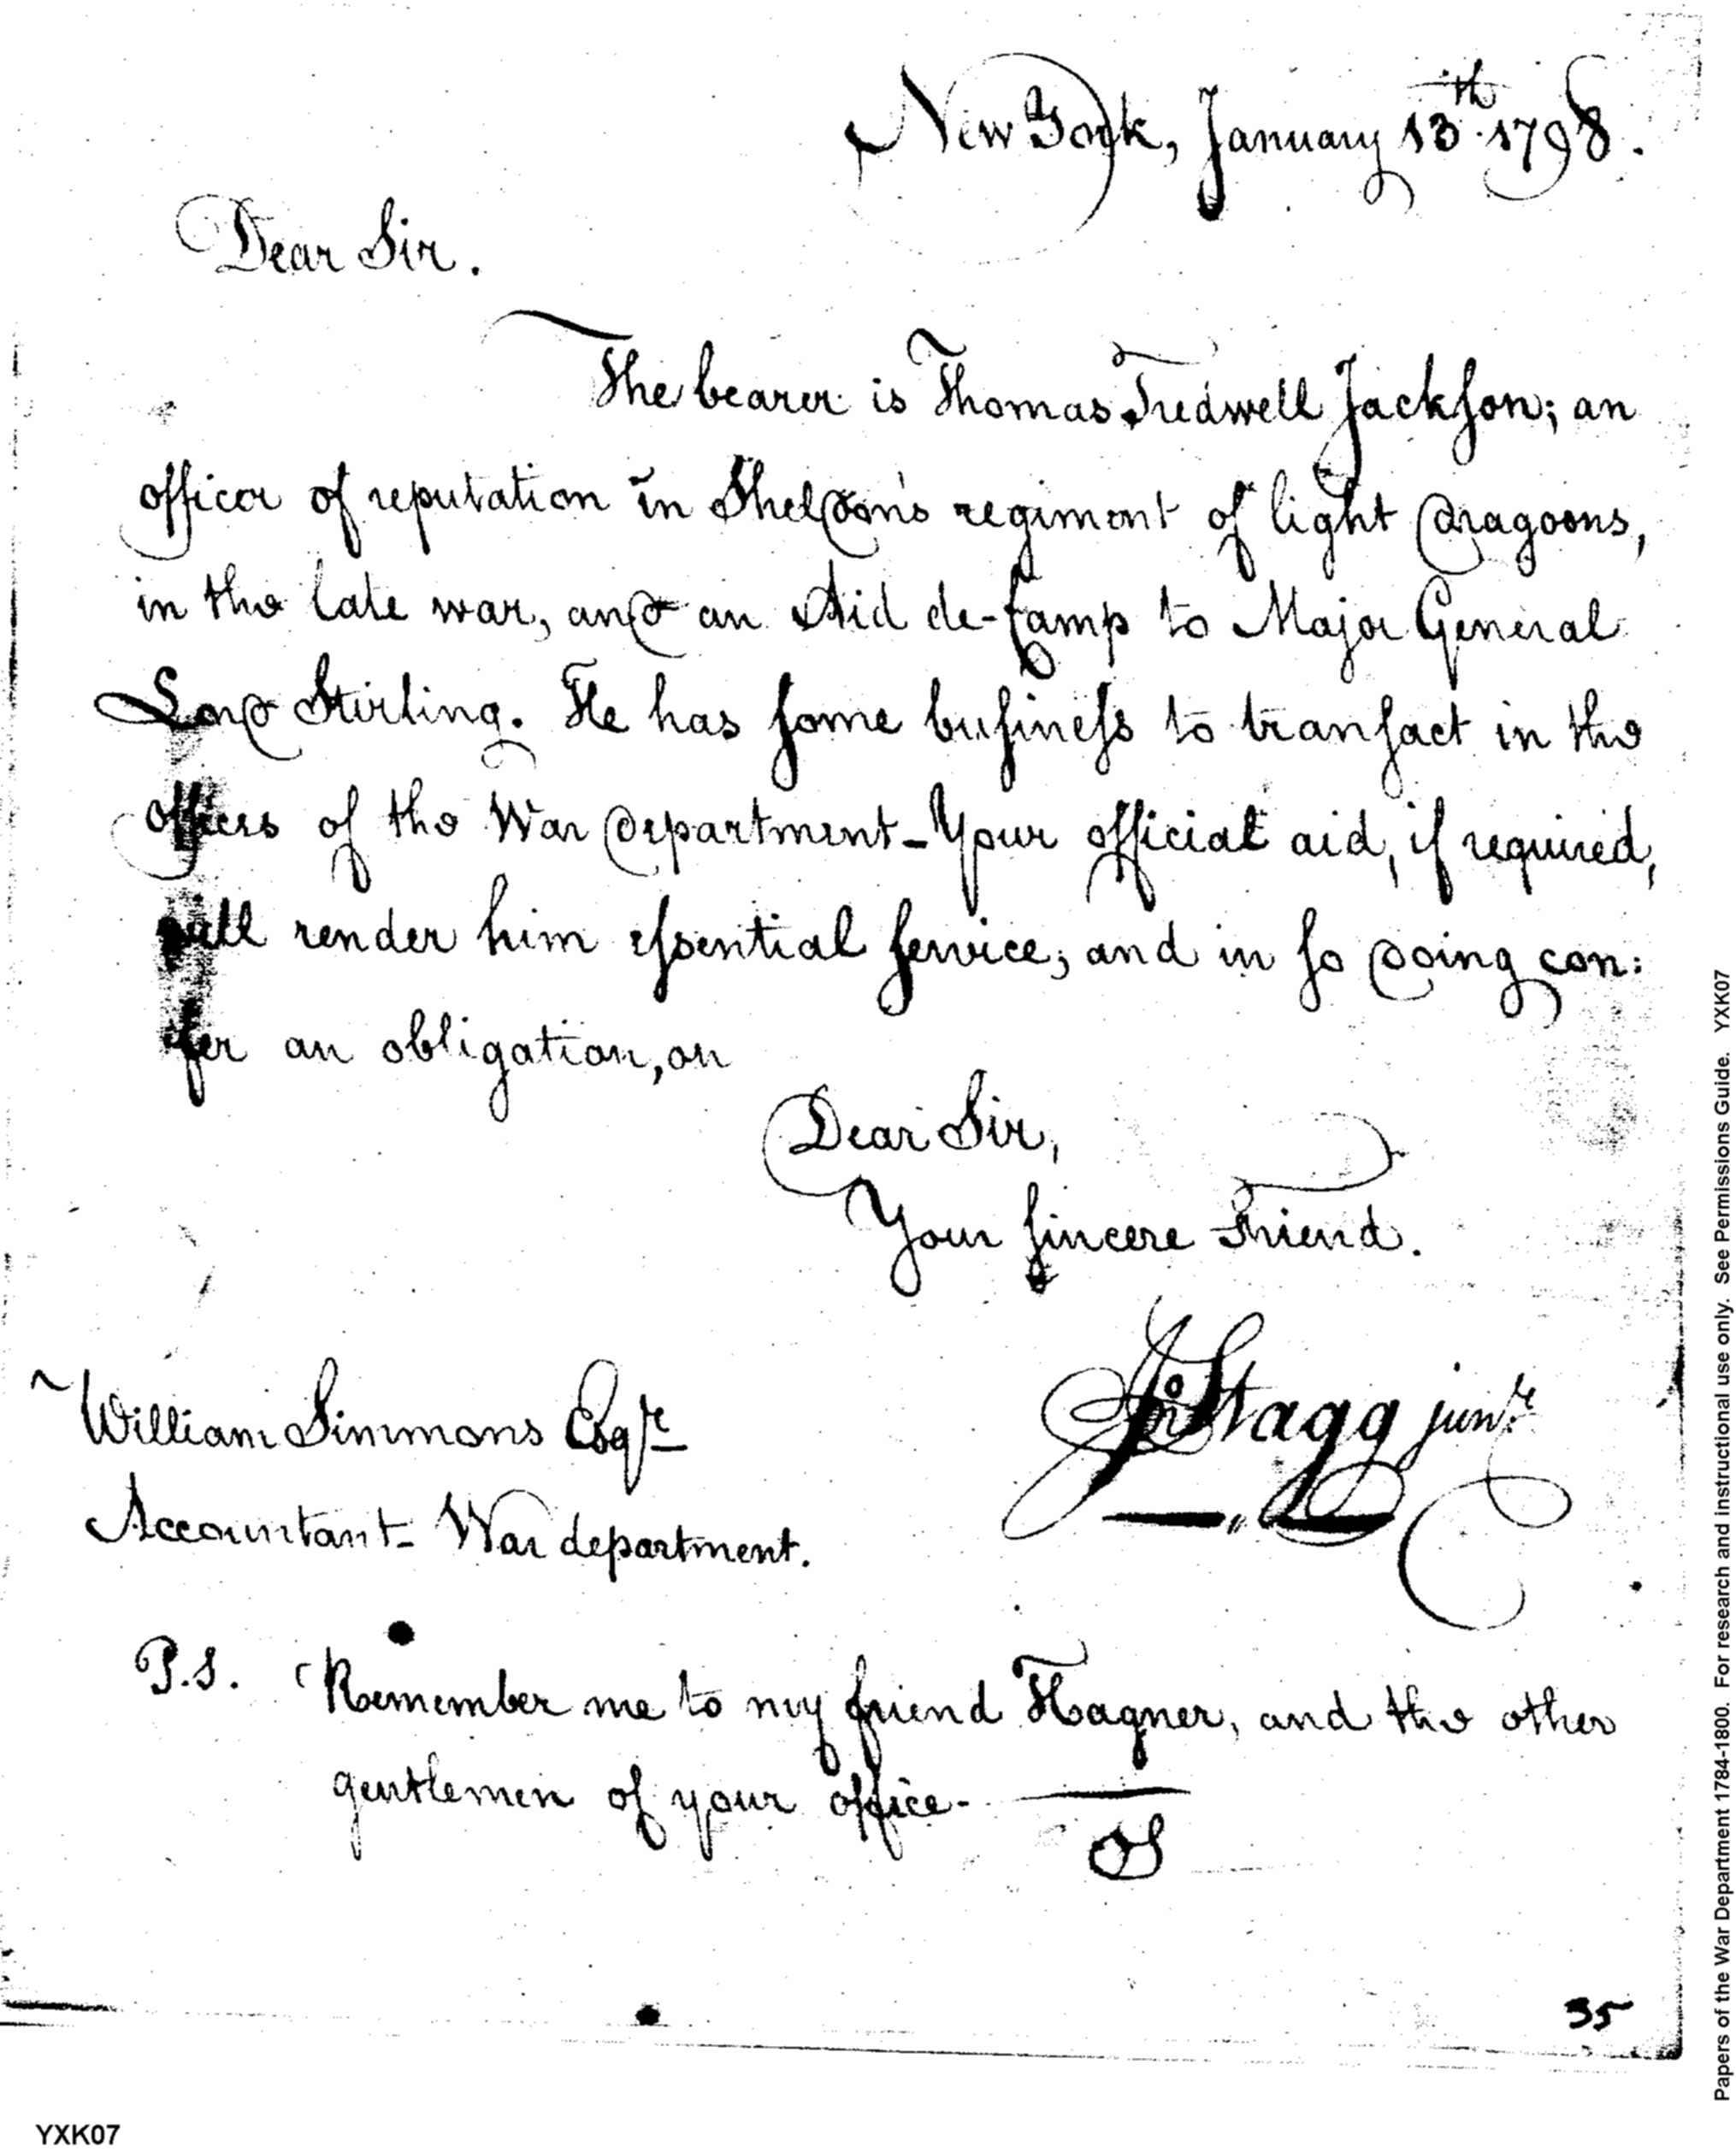 New York, January 13th. 1798.
Dear Sir.
The bearer is Thomas Tredwell Jackson; an
officer of reputation in Sheldon's regiment of light dragoons,
in the late war, and an Aid de-Camp to Major General
Lord Stirling. He has some business to transact in the
offices of the War department - Your official aid, if required,
will render him essential service; and in so doing con:
fer an obligation, on
Dear Sir,
Your sincere Friend.
Jno Stagg junr.
William Simmons Esqre
Accountant - War department.
P.S. Remember me to my friend Hagner, and the other
gentlemen of your office -
JS
35
YXK07
Papers of the War Department 1784-1800. For research and instructional use only. See Permissions Guide. YXK07